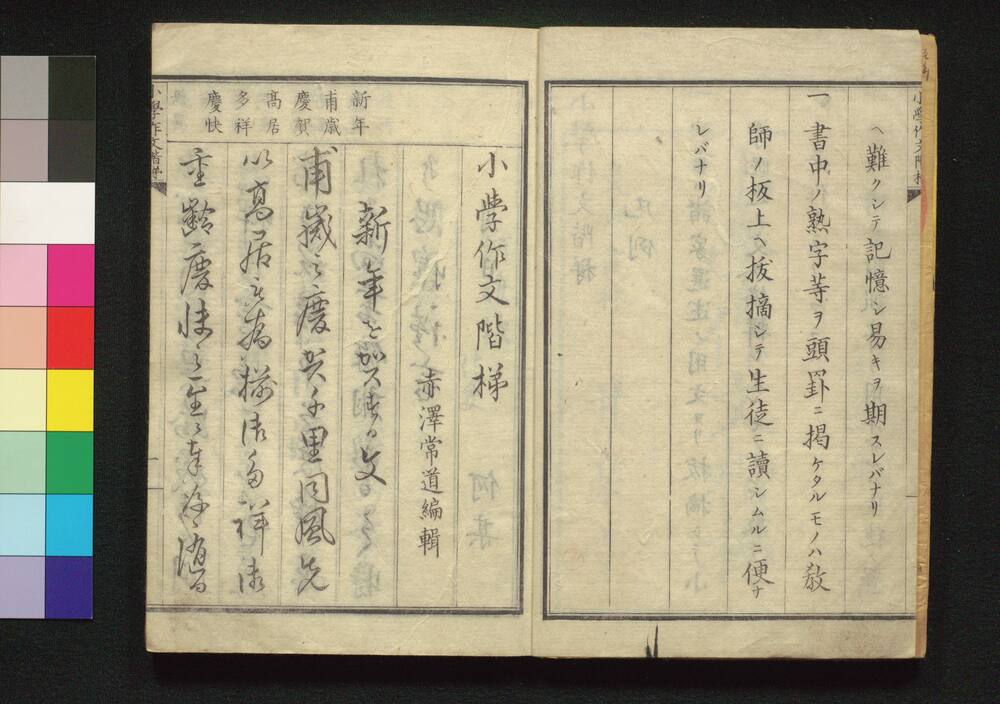 小學作文階梯
ヘ難クシテ記憶シ易キヲ期スレバナリ
一書中ノ熟字等ヲ頭罫ニ掲ケタルモノハ教
師ノ板上ヘ抜摘シテ生徒ニ讀シムルニ便ナ
レバナリ
新年
甫歳
慶賀
高居
多祥
慶快
小學作文階梯
赤澤常道編輯
新年を賀する文
甫歳之慶賀千里同風先
以高居被為揃御多祥御
重齢慶快之至奉存候随而
小學作文階梯
一